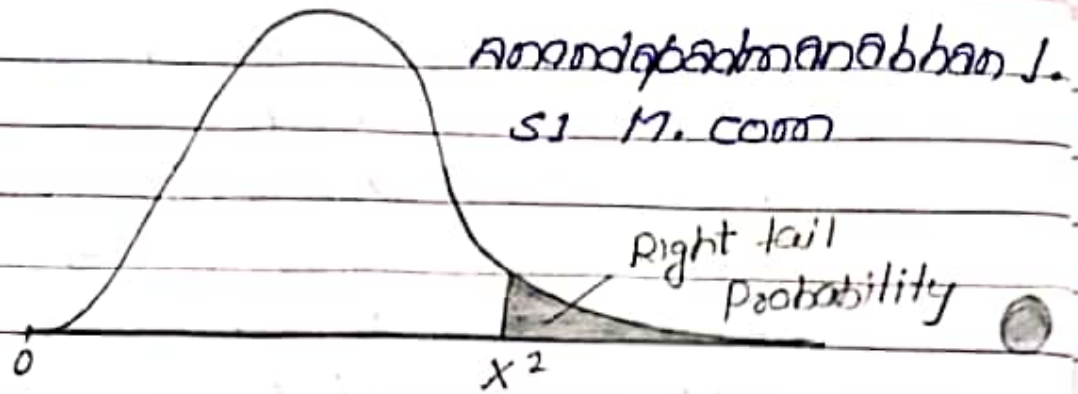 Anandapadmanabhan J.
S1 M. com
Right tail
Probability
0
X²